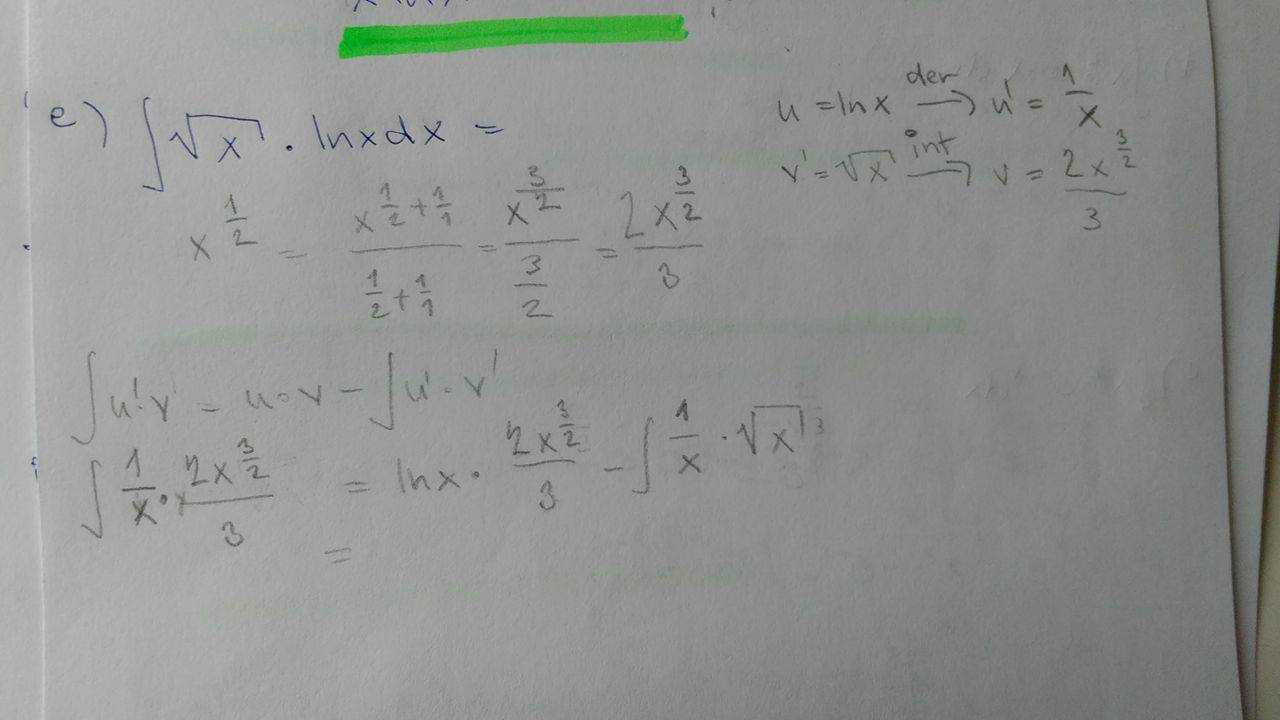 e) ∫√x · lnxdx =
u = lnx der→ u' = 1/x
v' = √x int→ v = 2x^(3/2)/3
x^(1/2) = x^(1/2+1/1)/(1/2+1/1) = x^(3/2)/(3/2) = 2x^(3/2)/3
∫u'·v = u·v - ∫u'·v'
∫1/x · 2x^(3/2)/3 = lnx · 2x^(3/2)/3 - ∫1/x · √x
=